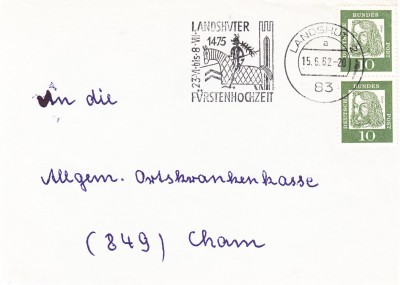 LANDSHUTER
1475
23.VI.bis 8.VII.
FÜRSTENHOCHZEIT
LANDSHUT 2
a
15.6.62-20
83
DEUTSCHE BUNDES POST
10
DEUTSCHE BUNDES POST
10
An die
Allgem. Ortskrankenkasse
(849) Cham